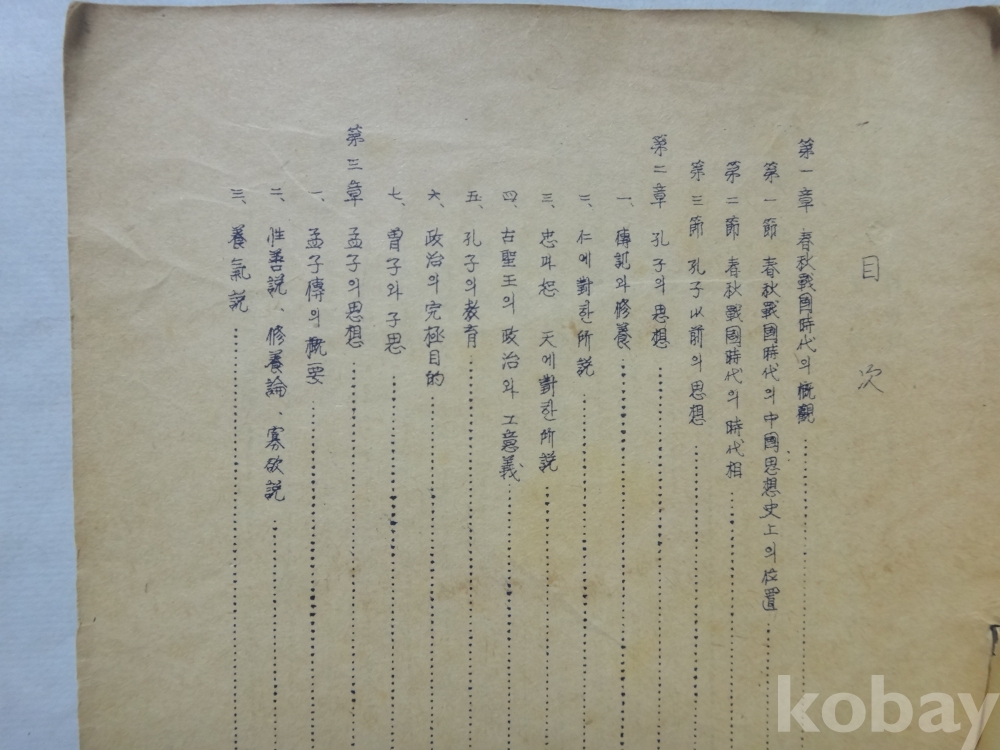 目次
第一章 春秋戰國時代의 槪觀
第一節 春秋戰國時代의 中國思想史上의 位置
第二節 春秋戰國時代의 時代相
第三節 孔子以前의 思想
第二章 孔子의 思想
一、傳記와 修養
二、仁에 對한 所說
三、忠과 恕 天에 對한 所說
四、古聖王의 政治와 그 意義
五、孔子의 敎育
六、政治의 究極目的
七、曾子와 子思
第三章 孟子의 思想
一、孟子傳의 槪要
二、性善說、修養論、寡欲說
三、養氣說
kobay